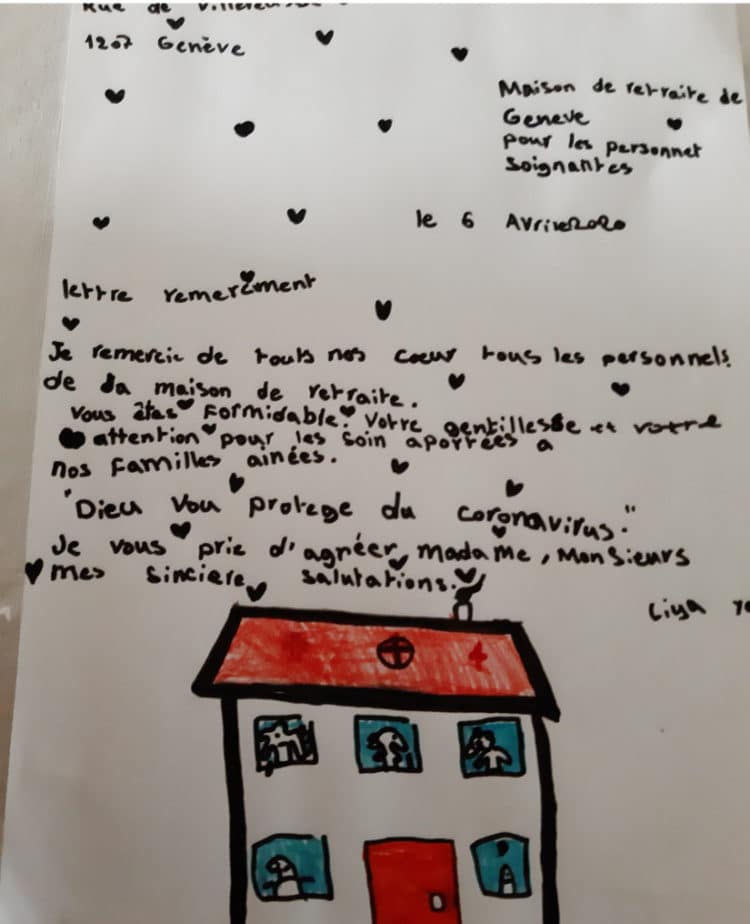 Rue de
1207 Genève
Maison de retraite de
Geneve
pour les personnet
soignantes
le 6 Avrile2020
lettre remerciment
Je remercie de touts nos coeur tous les personnels
de la maison de retraite.
Vous êtes Formidable. Votre gentillesse et votre
attention pour les soin aportées a
nos familles ainées.
"Dieu vou protege du coronavirus."
Je vous prie d'agréer, madame, Monsieurs
mes sinciere, salutations.
Liya